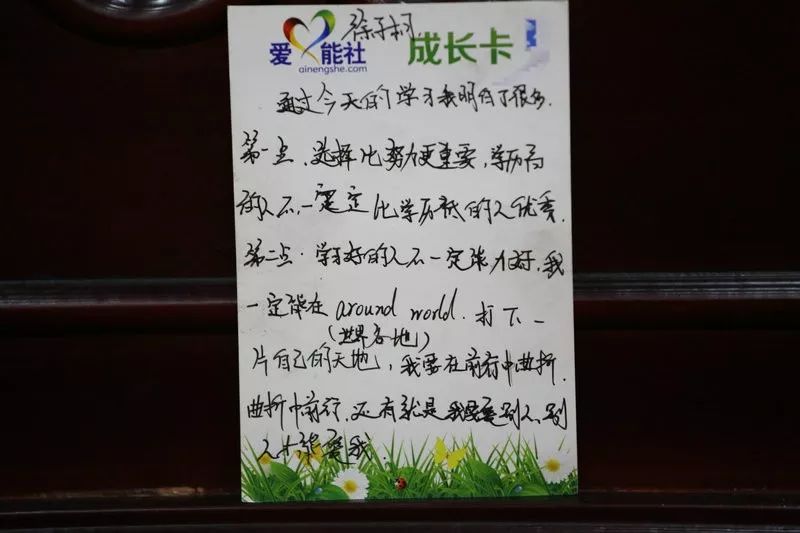 爱能社 徐子桐 成长卡
ainengshe.com
通过今天的学习我明白了很多.
第一点、选择比努力更重要,学历高
的人不一定比学历低的人优秀.
第二点.学习好的人不一定能力好.我
一定能在 around world. 打下一
(世界各地)
片自己的天地,我要在前行中曲折.
曲折中前行.还有就是我要爱别人.别
人才能爱我.